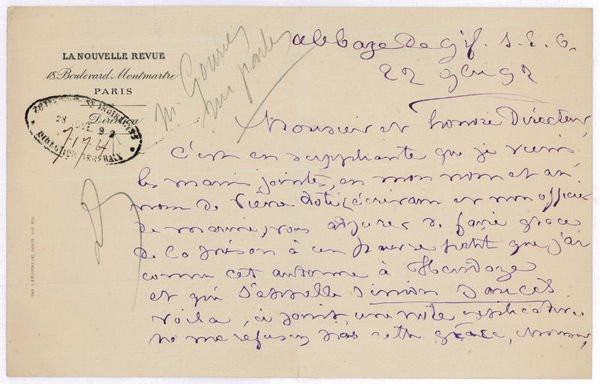 LA NOUVELLE REVUE
18, Boulevard Montmartre
PARIS
Direction
M. Gouriev
m'en parler
abbaye de Gif. S. & O.
22
Monsieur et honoré Directeur,
C'est en suppliante que je viens
les mains jointes, en mon nom et au
nom de Pierre Loti, écrivain et non officier
de marine, vous adjurer de faire grâce
de la prison à un pauvre petit que j'ai
connu cet automne à Hendaye
et qui s'appelle Simon
voilà, ci joint, une note explicative
ne me refusez pas cette grâce, Monsieur,